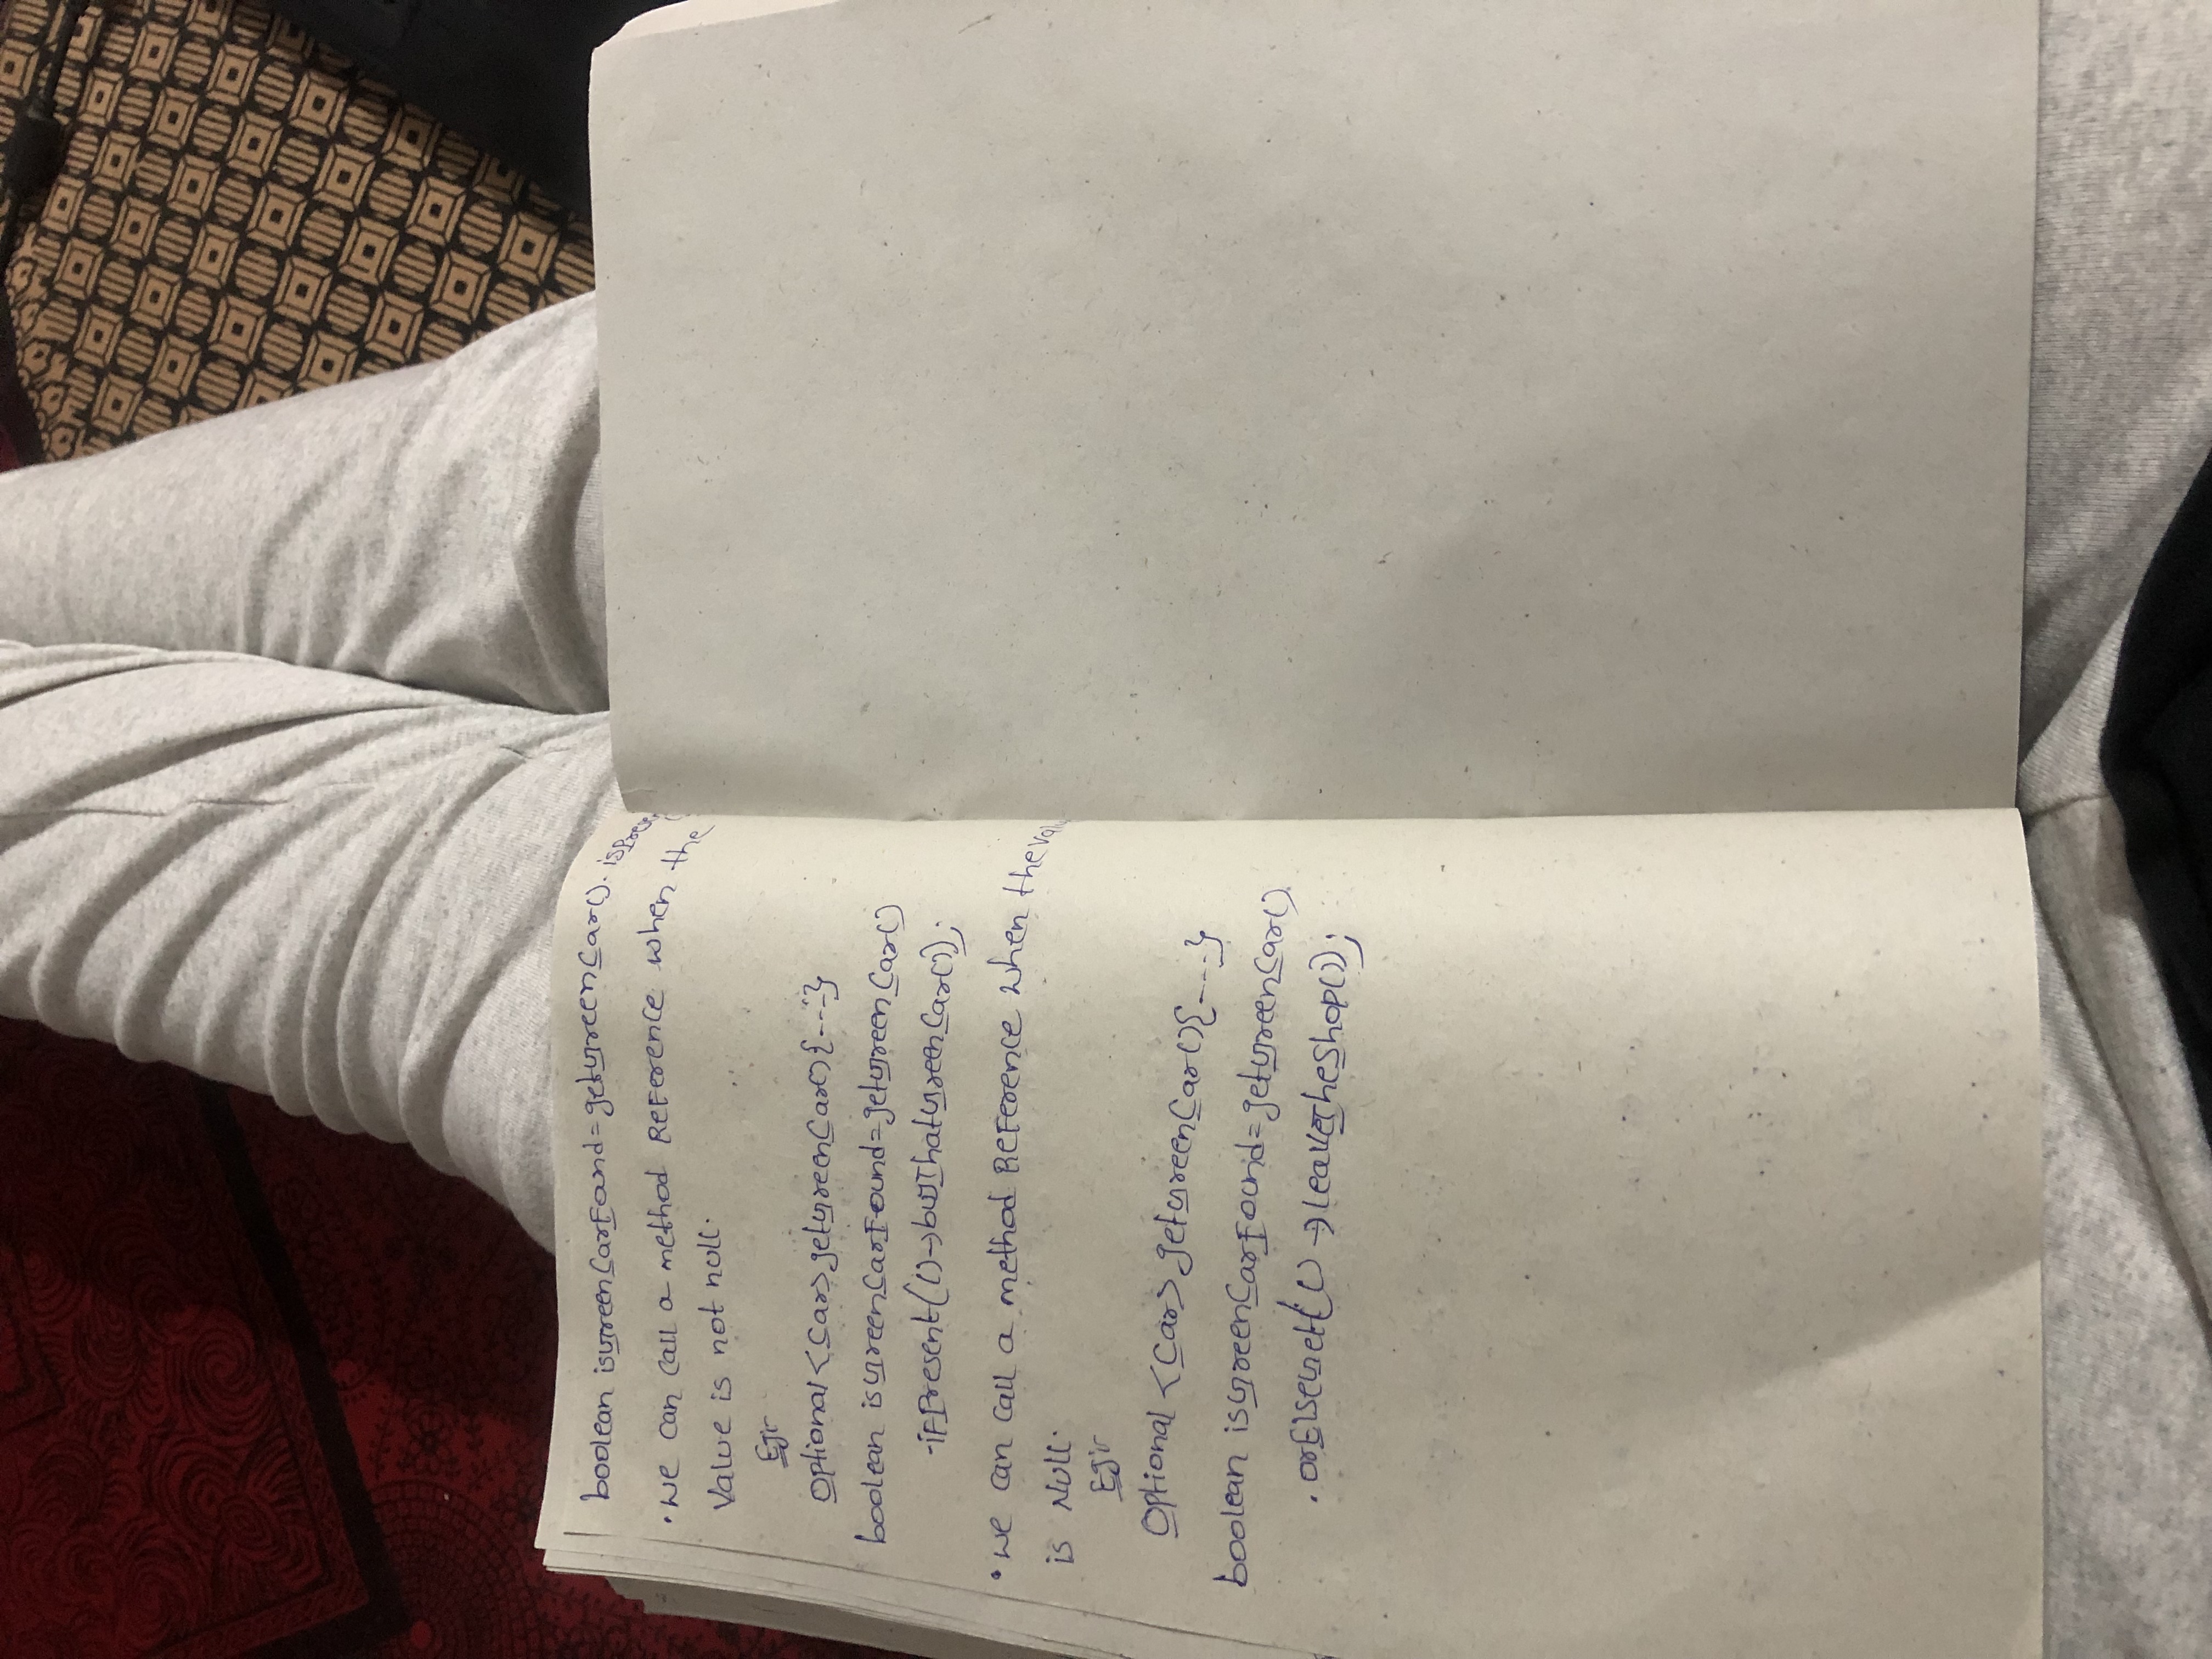 boolean isGreenCarFound=getGreenCar().isPrese
• we can call a method Reference when the
Value is not null.
Eg:-
Optional<Car>getGreenCar(){----}
boolean isGreenCarFound=getGreenCar()
.ifPresent(()->buyThatGreenCar());
• we can call a method Reference when the val
is Null.
Eg:-
Optional <Car> getGreenCar(){----}
boolean isGreenCarFound=getGreenCar().
.orElseGet(() -> leaveTheShop());